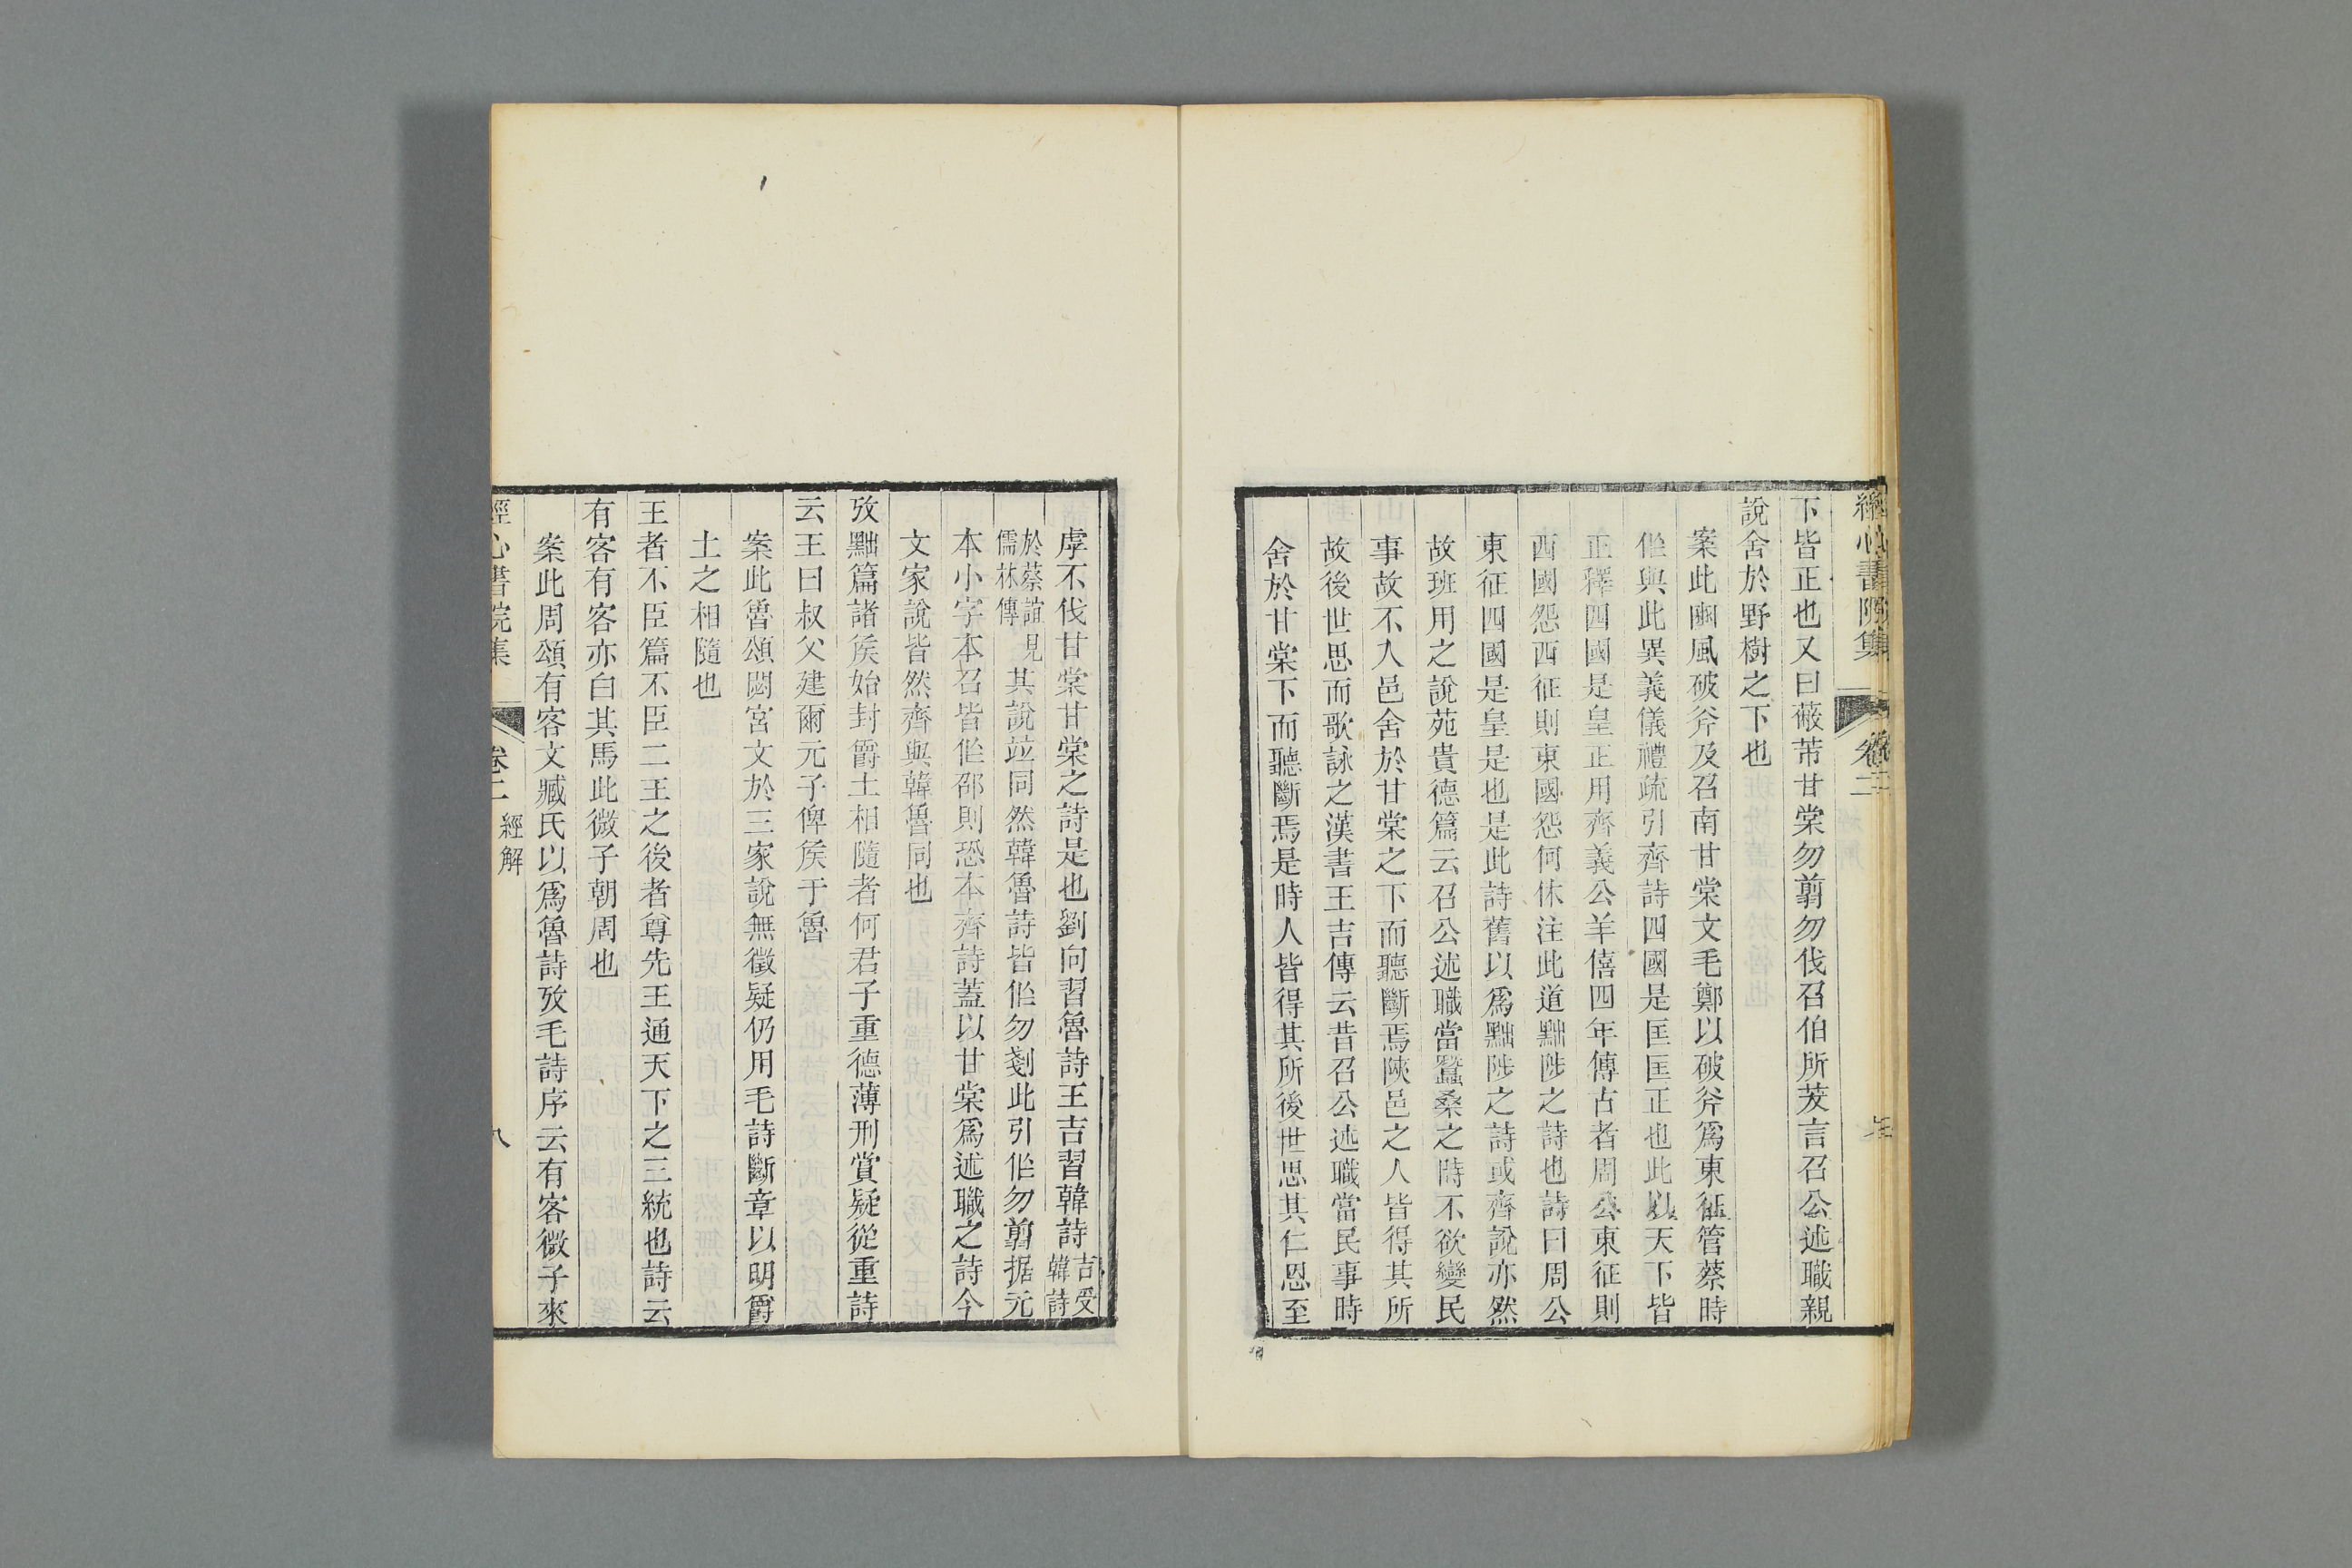 經心書院集
卷二
下皆正也又曰蔽芾甘棠勿翦勿伐召伯所茇言召公述職親
說舍於野樹之下也
案此豳風破斧及召南甘棠文毛鄭以破斧爲東征管蔡時
作與此異義儀禮疏引齊詩四國是匡匡正也此以天下皆
正釋四國是皇正用齊義公羊僖四年傳古者周公東征則
西國怨西征則東國怨何休注此道黜陟之詩也詩曰周公
東征四國是皇是也是此詩舊以爲黜陟之詩或齊說亦然
故班用之說苑貴德篇云召公述職當蠶桑之時不欲變民
事故不入邑舍於甘棠之下而聽斷焉陝邑之人皆得其所
故後世思而歌詠之漢書王吉傳云昔召公述職當民事時
舍於甘棠下而聽斷焉是時人皆得其所後世思其仁恩至
虖不伐甘棠甘棠之詩是也劉向習魯詩王吉習韓詩吉受韓詩
於蔡誼見儒林傳其說竝同然韓魯詩皆作勿剗此引作勿翦据元
本小字本召皆作邵則恐本齊詩蓋以甘棠爲述職之詩今
文家說皆然齊與韓魯同也
攷黜篇諸矦始封爵土相隨者何君子重德薄刑賞疑從重詩
云王曰叔父建爾元子俾矦于魯
案此魯頌閟宮文於三家說無徵疑仍用毛詩斷章以明爵
土之相隨也
王者不臣篇不臣二王之後者尊先王通天下之三統也詩云
有客有客亦白其馬此微子朝周也
案此周頌有客文臧氏以爲魯詩攷毛詩序云有客微子來
經心書院集
卷二
經解
八